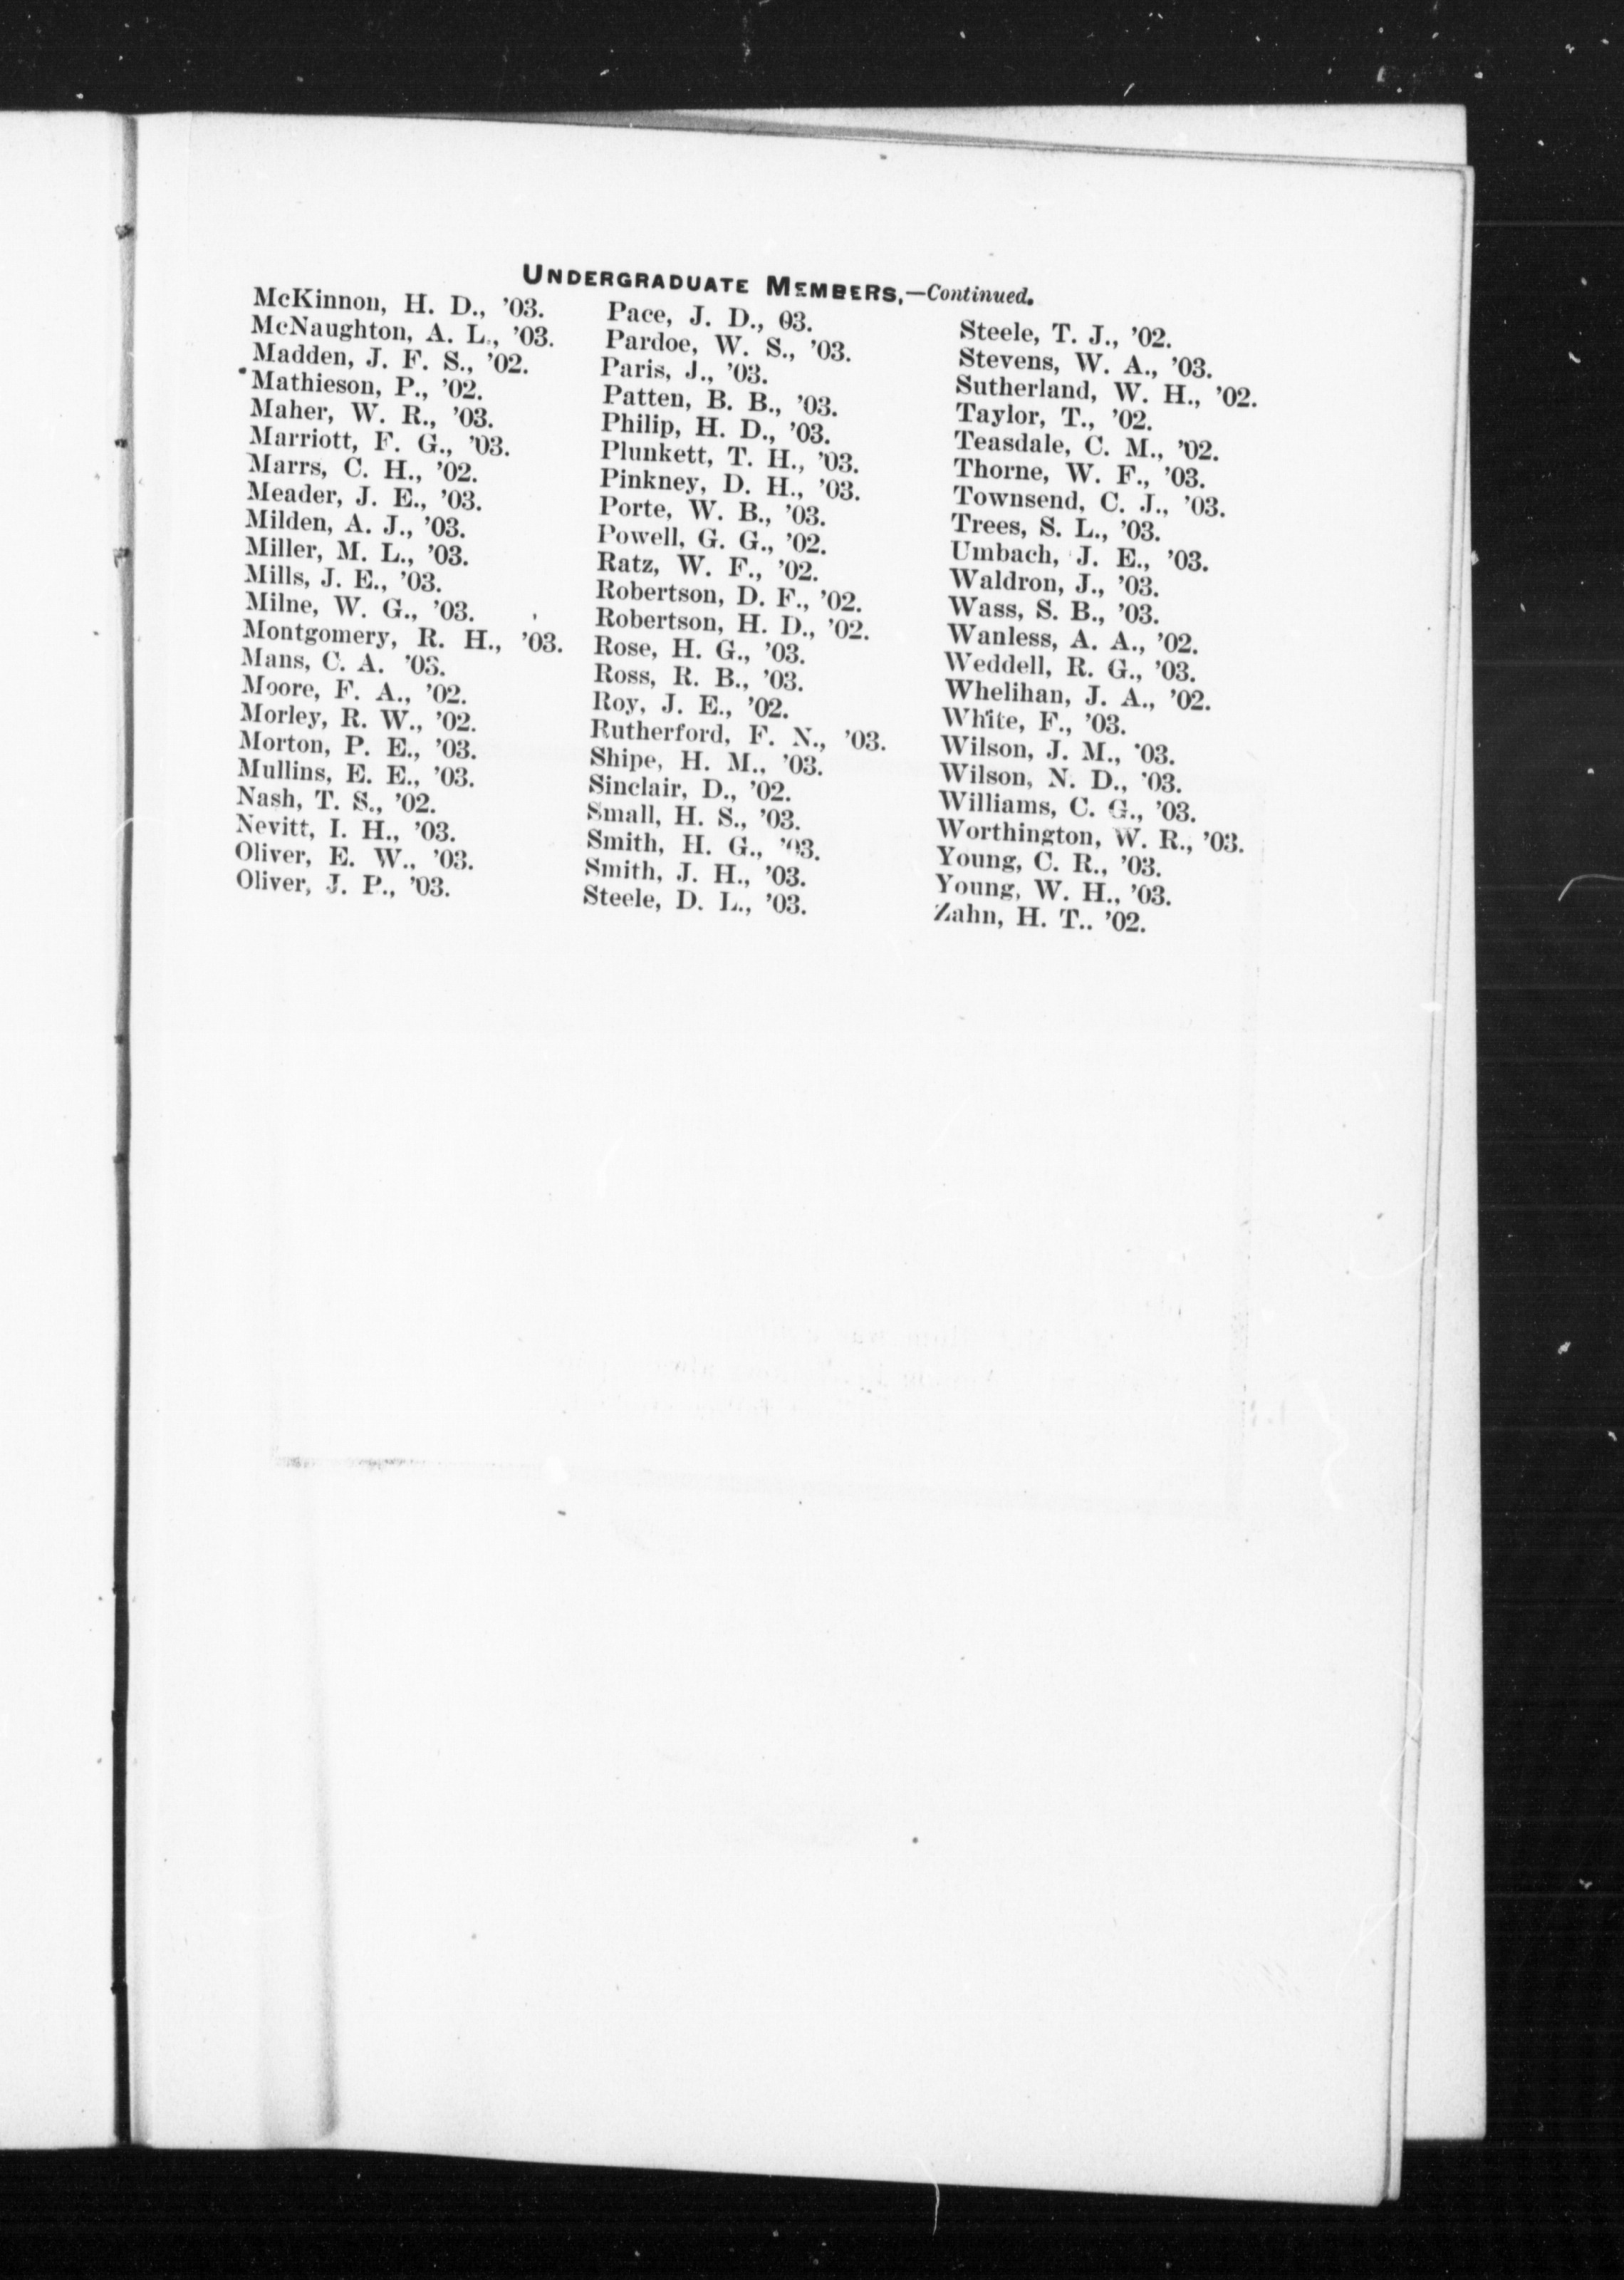 UNDERGRADUATE MEMBERS,—Continued.
McKinnon, H. D., '03.
McNaughton, A. L., '03.
Madden, J. F. S., '02.
Mathieson, P., '02.
Maher, W. R., '03.
Marriott, F. G., '03.
Marrs, C. H., '02.
Meader, J. E., '03.
Milden, A. J., '03.
Miller, M. L., '03.
Mills, J. E., '03.
Milne, W. G., '03.
Montgomery, R. H., '03.
Mans, C. A. '03.
Moore, F. A., '02.
Morley, R. W., '02.
Morton, P. E., '03.
Mullins, E. E., '03.
Nash, T. S., '02.
Nevitt, I. H., '03.
Oliver, E. W., '03.
Oliver, J. P., '03.
Pace, J. D., 03.
Pardoe, W. S., '03.
Paris, J., '03.
Patten, B. B., '03.
Philip, H. D., '03.
Plunkett, T. H., '03.
Pinkney, D. H., '03.
Porte, W. B., '03.
Powell, G. G., '02.
Ratz, W. F., '02.
Robertson, D. F., '02.
Robertson, H. D., '02.
Rose, H. G., '03.
Ross, R. B., '03.
Roy, J. E., '02.
Rutherford, F. N., '03.
Shipe, H. M., '03.
Sinclair, D., '02.
Small, H. S., '03.
Smith, H. G., '03.
Smith, J. H., '03.
Steele, D. L., '03.
Steele, T. J., '02.
Stevens, W. A., '03.
Sutherland, W. H., '02.
Taylor, T., '02.
Teasdale, C. M., '02.
Thorne, W. F., '03.
Townsend, C. J., '03.
Trees, S. L., '03.
Umbach, J. E., '03.
Waldron, J., '03.
Wass, S. B., '03.
Wanless, A. A., '02.
Weddell, R. G., '03.
Whelihan, J. A., '02.
White, F., '03.
Wilson, J. M., '03.
Wilson, N. D., '03.
Williams, C. G., '03.
Worthington, W. R., '03.
Young, C. R., '03.
Young, W. H., '03.
Zahn, H. T.. '02.